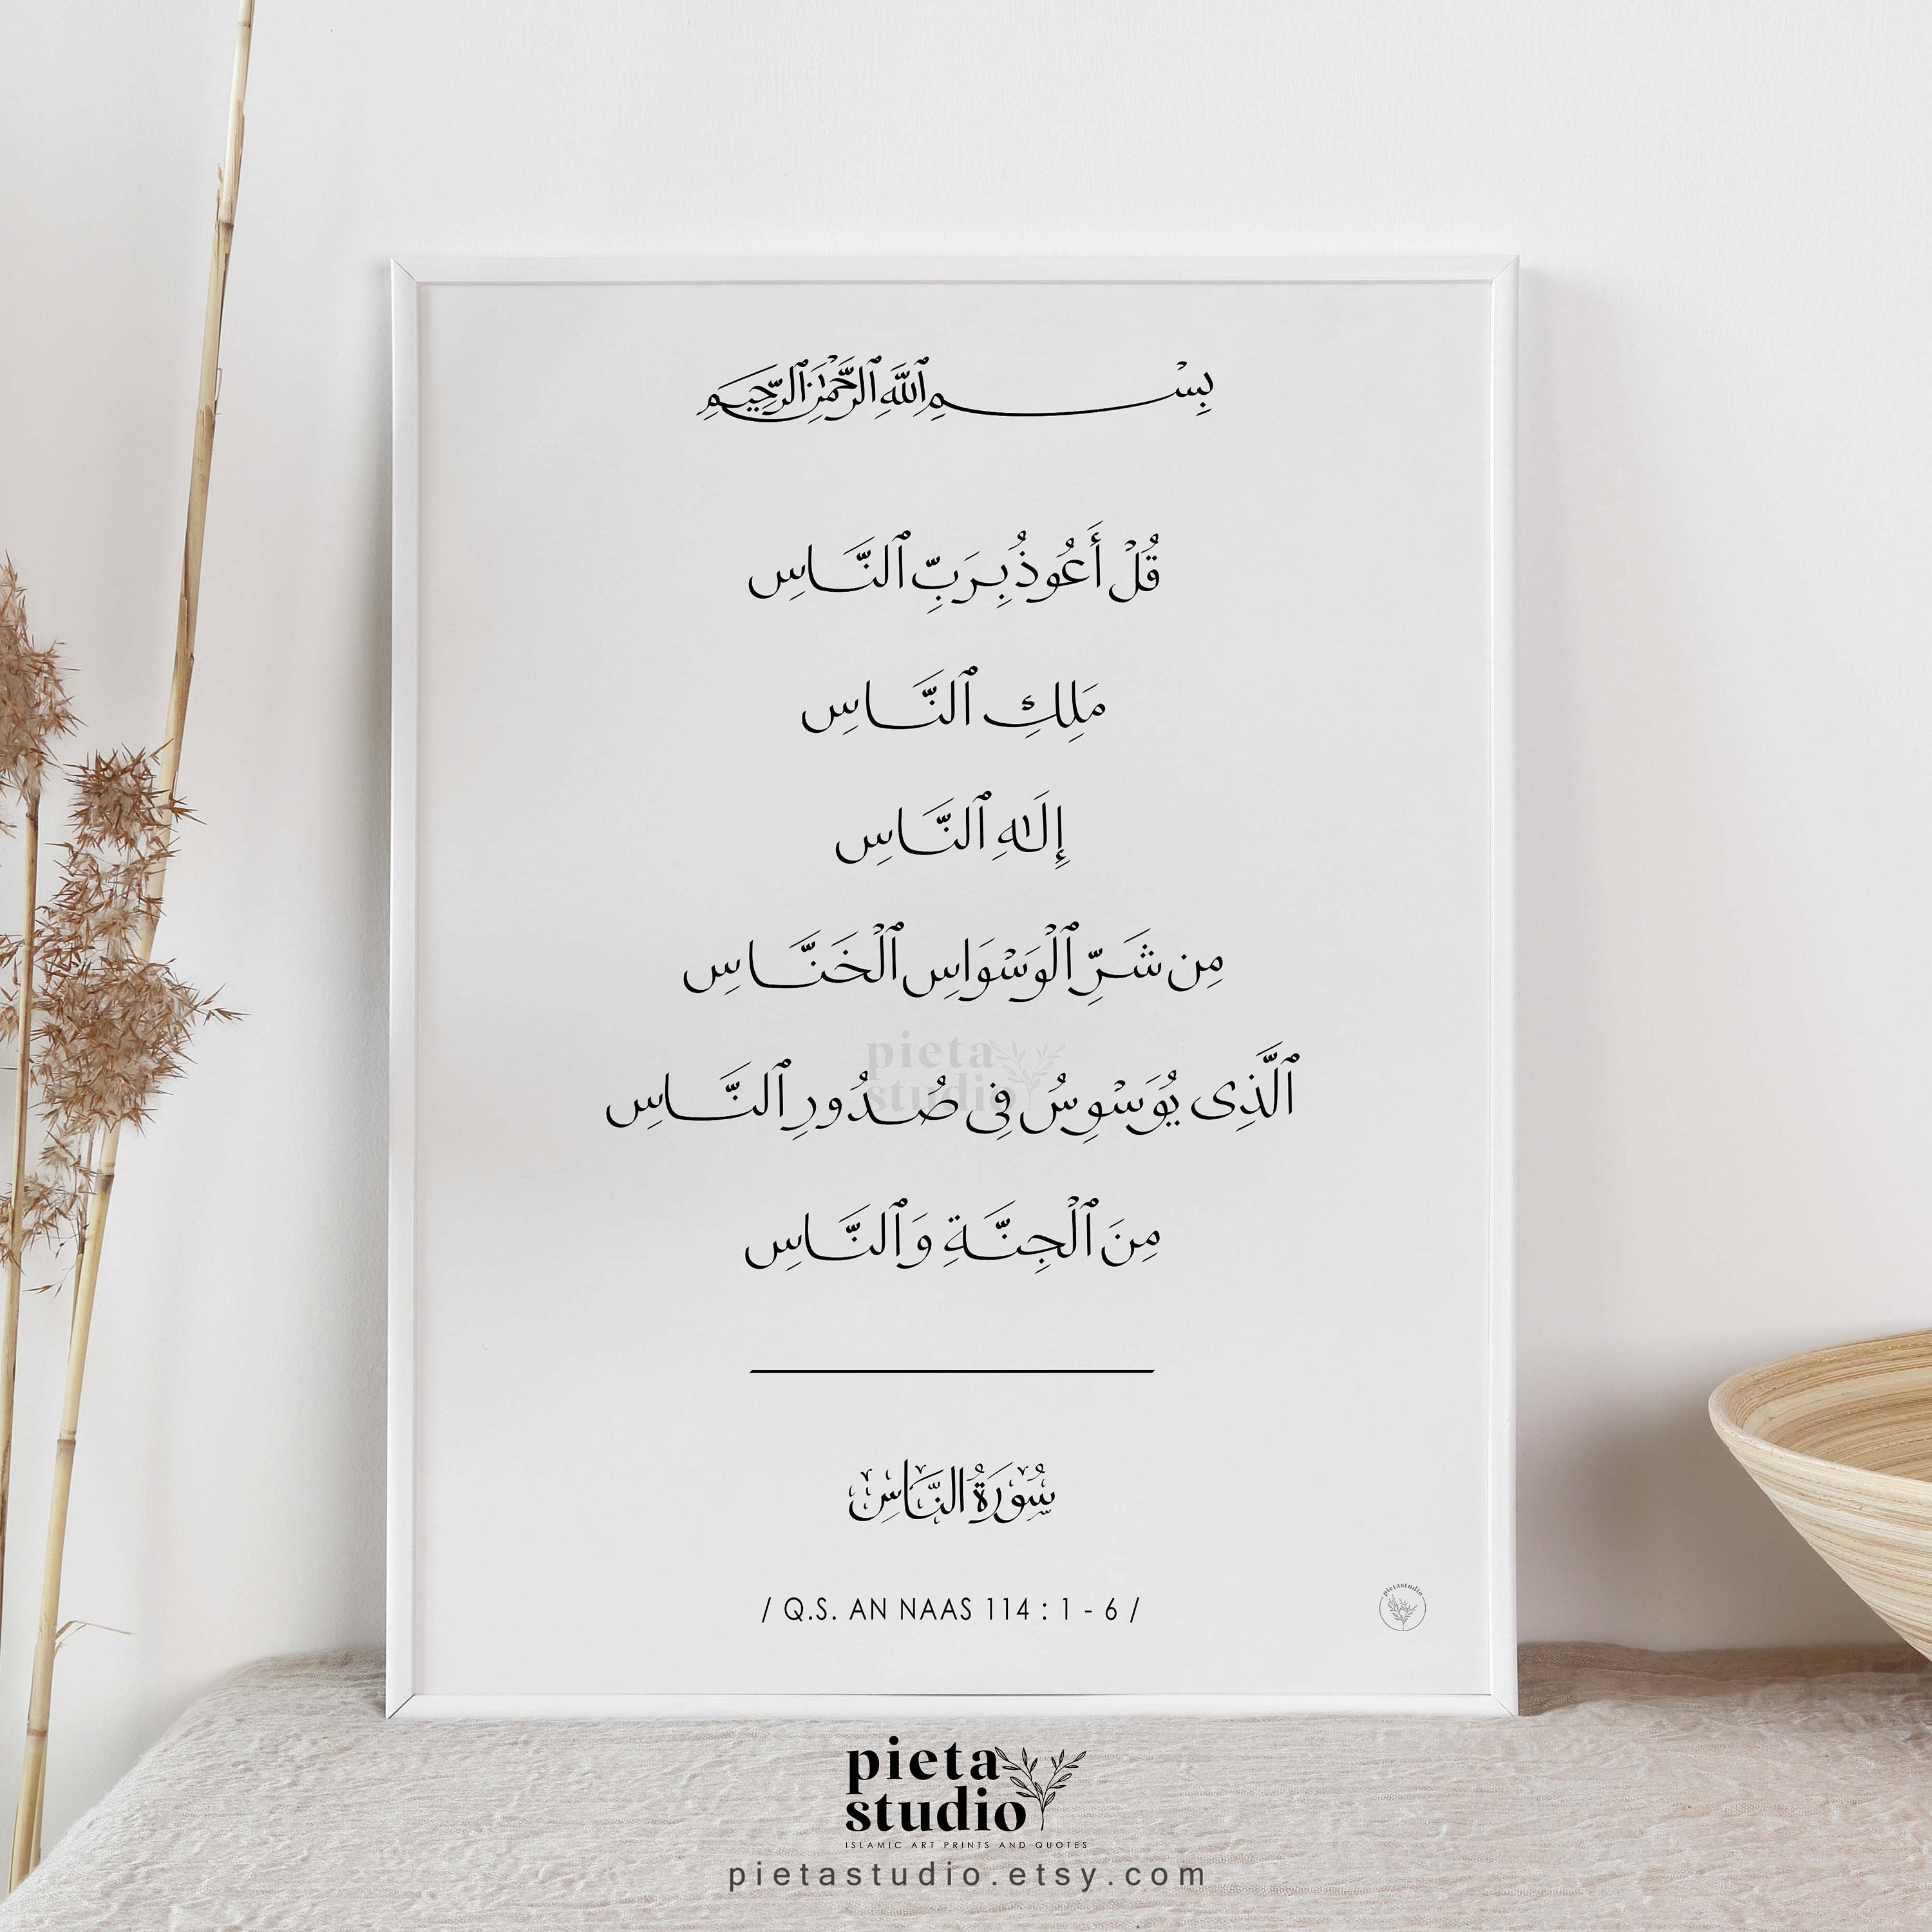 بِسْمِ ٱللَّهِ ٱلرَّحْمَٰنِ ٱلرَّحِيمِ
قُلْ أَعُوذُ بِرَبِّ ٱلنَّاسِ
مَلِكِ ٱلنَّاسِ
إِلَٰهِ ٱلنَّاسِ
مِن شَرِّ ٱلْوَسْوَاسِ ٱلْخَنَّاسِ
pieta
studio
ٱلَّذِى يُوَسْوِسُ فِى صُدُورِ ٱلنَّاسِ
مِنَ ٱلْجِنَّةِ وَٱلنَّاسِ
سُورَةُ النَّاسِ
/ Q.S. AN NAAS 114 : 1 - 6 /
pietastudio
pieta
studio
ISLAMIC ART PRINTS AND QUOTES
pietastudio.etsy.com